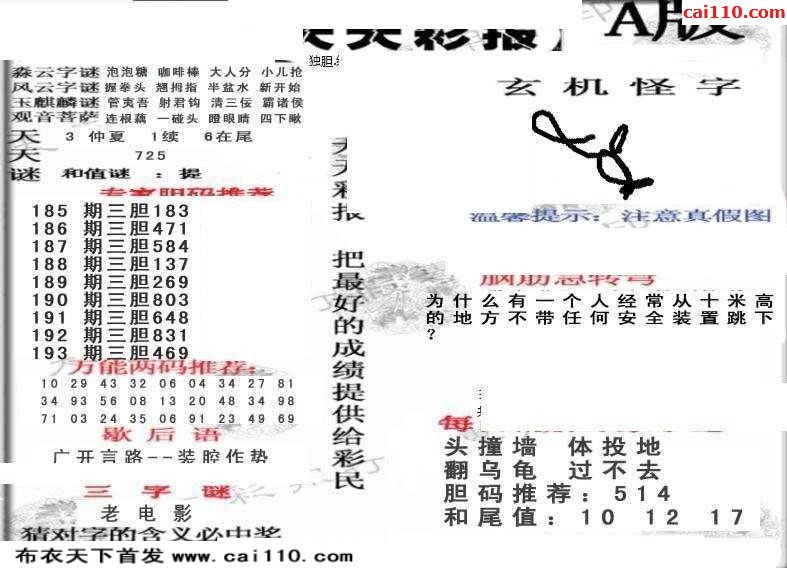 cai110.com
天天彩报 A版
独胆
森云字谜 泡泡糖 咖啡棒 大人分 小儿抢
风云字谜 握拳头 翘拇指 半盆水 新开始
玉麒麟谜 管夷吾 射君钩 清三佞 霸诸侯
观音菩萨 连根藕 一碰头 瞪眼睛 四下瞅
天 3 仲夏 1续 6在尾
天 725
谜 和值谜 :提
专家胆码推荐
185 期三胆183
186 期三胆471
187 期三胆584
188 期三胆137
189 期三胆269
190 期三胆803
191 期三胆648
192 期三胆831
193 期三胆469
万能两码推荐:
10 29 43 32 06 04 34 27 81
34 93 56 08 13 20 48 34 98
71 03 24 35 06 91 23 49 69
歇后语
广开言路--装腔作势
三字谜
老电影
猜对字的含义必中奖
天天彩报 把最好的成绩提供给彩民
玄机怪字
温馨提示: 注意真假图
脑筋急转弯
为什么有一个人经常从十米高
的地方不带任何安全装置跳下
?
每
头撞墙 体投地
翻乌龟 过不去
胆码推荐:514
和尾值:10 12 17
布衣天下首发 www.cai110.com